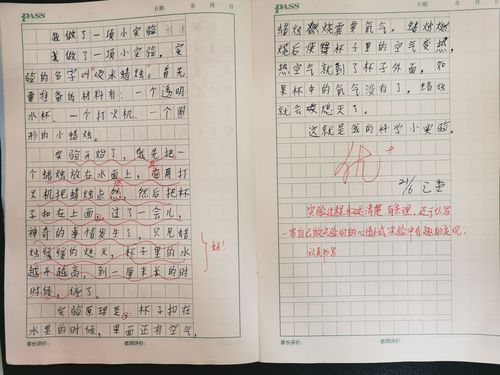 PASS
日期: 年 月 日
我做了一项小实验
我做了一项小实验，实
验的名字叫吸水蜡烛。首先
要准备的材料有：一个透明
水杯、一个打火机、一个圆
形的小蜡烛。
实验开始了，我先把一
个蜡烛放在水面上，再用打
火机把蜡烛点燃，然后把杯
子扣在上面。过了一会儿，
神奇的事情发生了，只见蜡
烛慢慢的熄灭，杯子里的水
越升越高，到一厘米美的时
时候，停了。
好！
实验原理是：杯子扣在
水里的时候，里面还有空气，
家长评价: 老师评价:
PASS
日期: 年 月 日
蜡烛燃烧需要氧气，蜡烛燃
烧后使得杯子里的空气变热，
热空气就到了杯子外面，如
果杯中的氧气没有了，蜡烛
就会熄灭了。
这就是我的科学小实验。
优+
21/6 已查
实验过程叙述清楚、有条理，还可以写
一写自己做实验时的心情或实验中有趣的发现。
认真书写
家长评价: 老师评价: